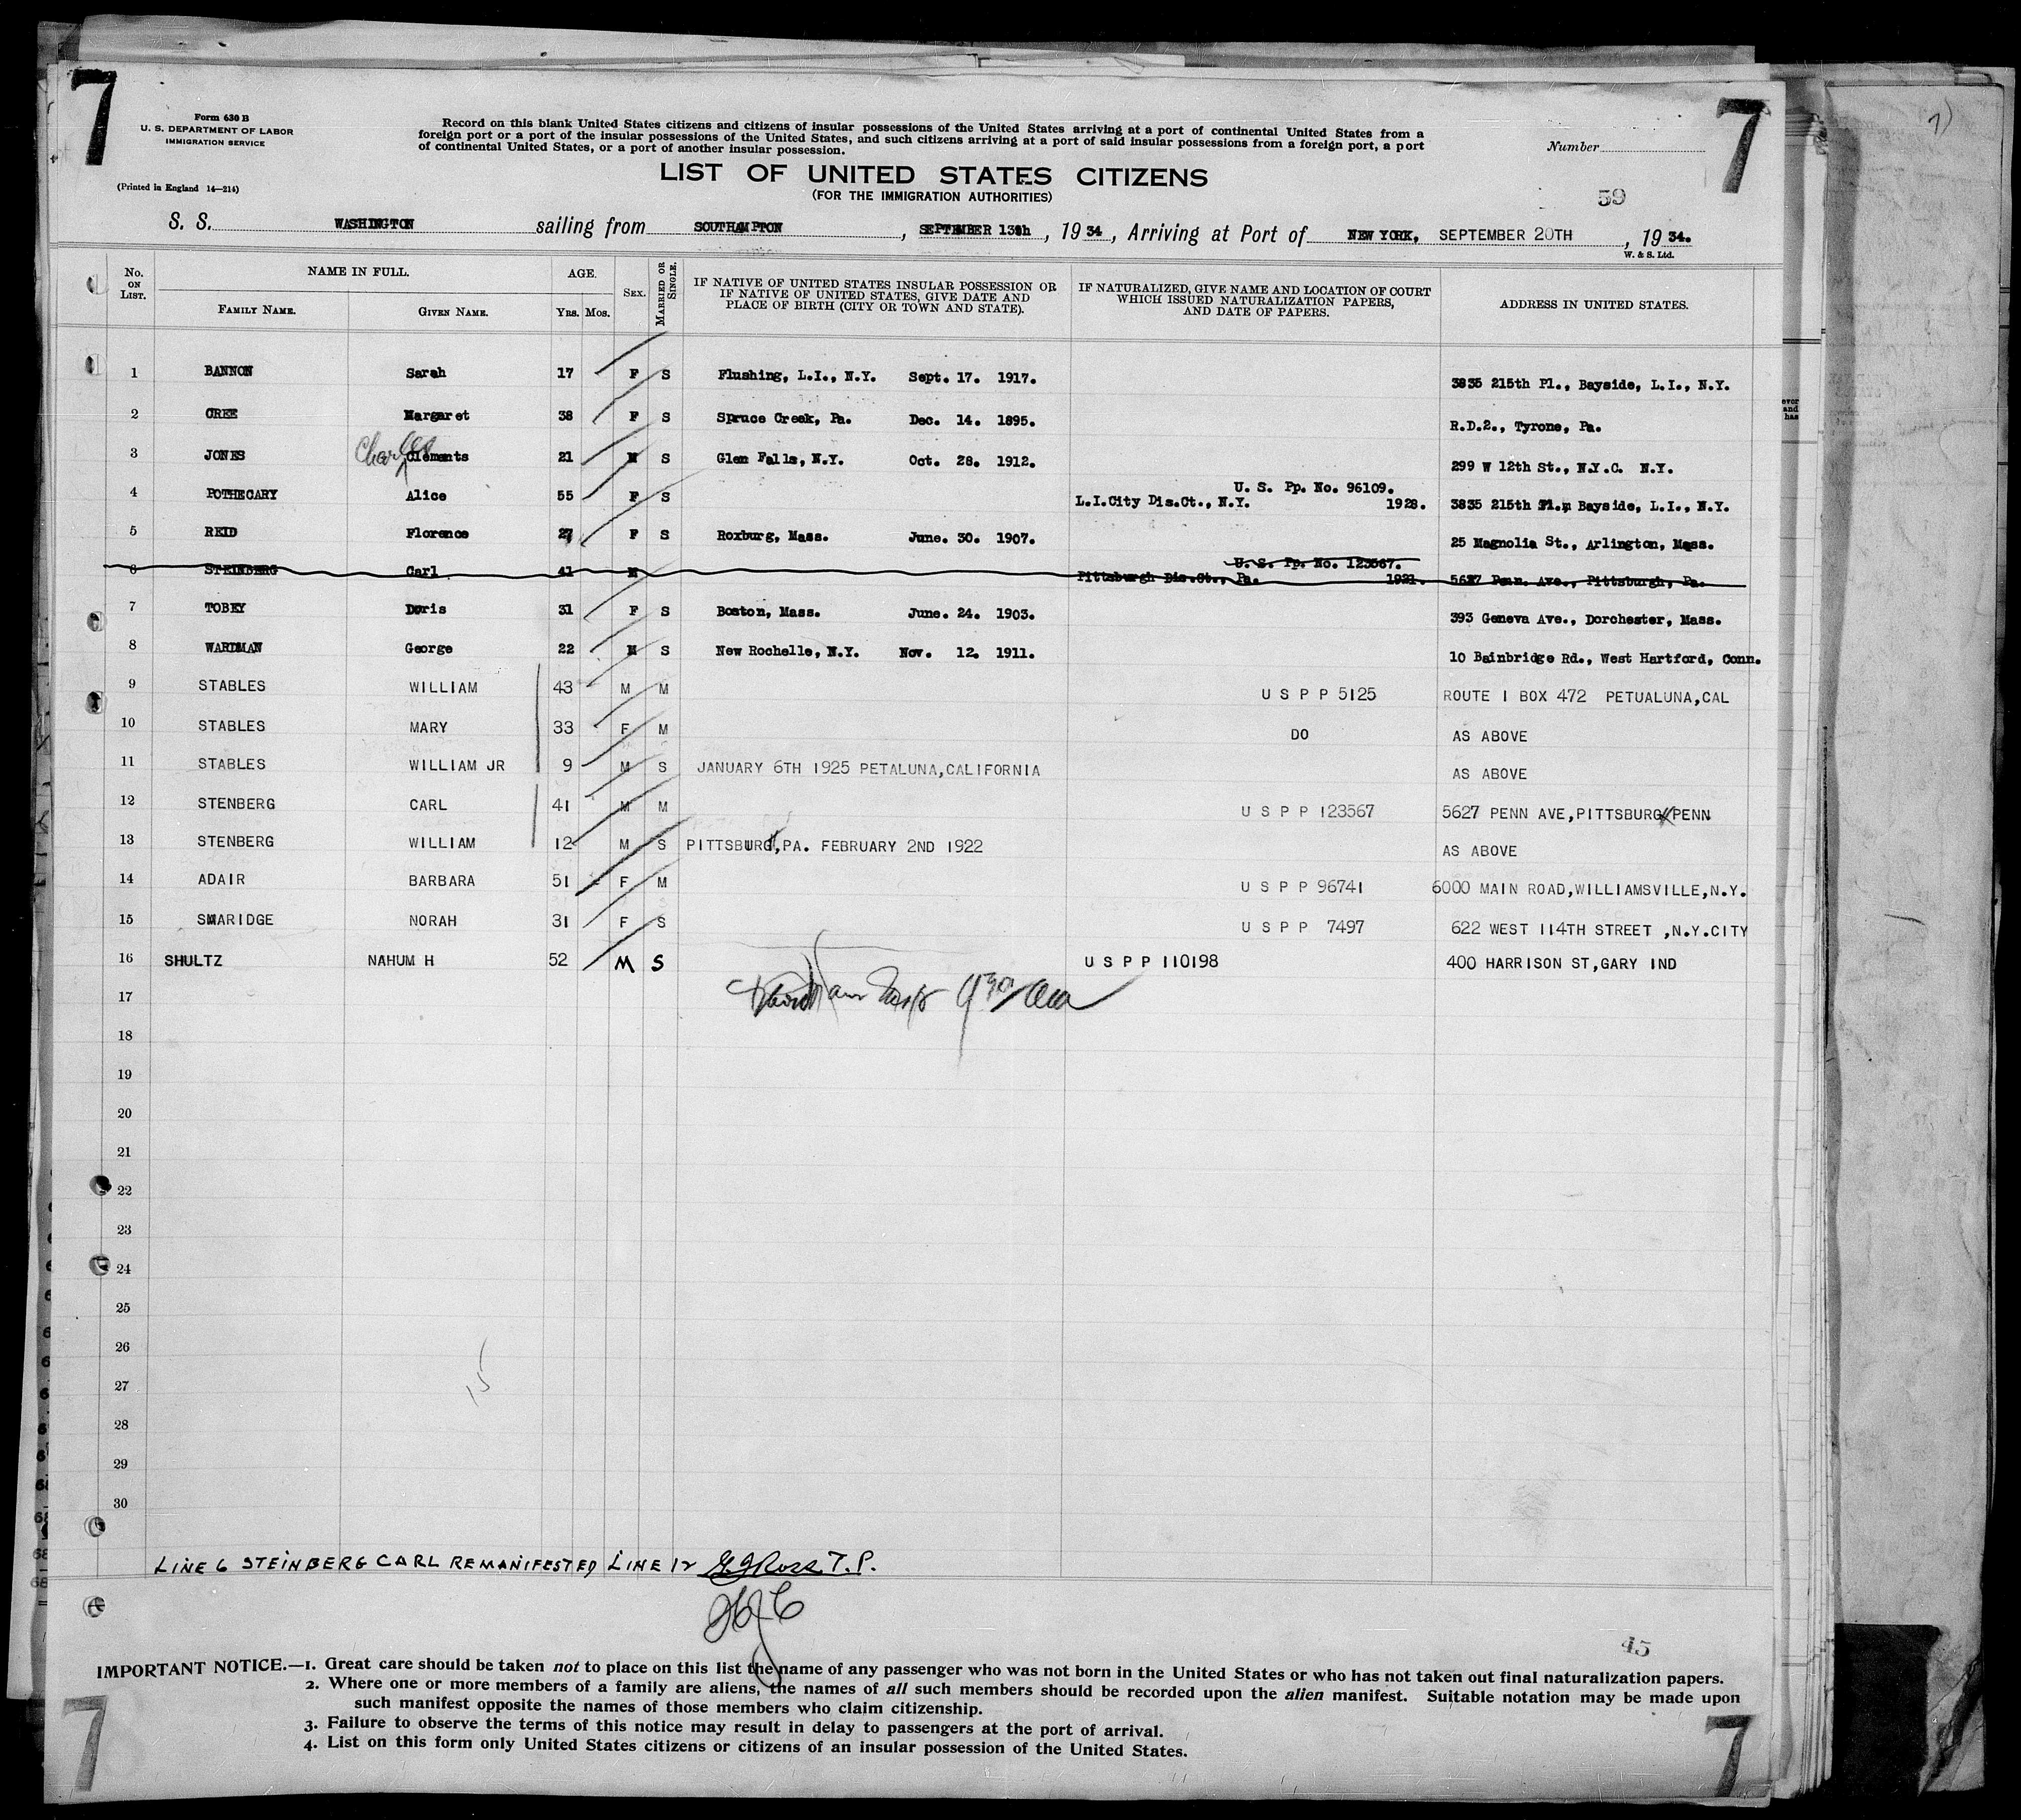 7
7
7)
Form 630 B
U. S. DEPARTMENT OF LABOR
IMMIGRATION SERVICE
(Printed in England 14—214)
Record on this blank United States citizens and citizens of insular possessions of the United States arriving at a port of continental United States from a
foreign port or a port of the insular possessions of the United States, and such citizens arriving at a port of said insular possessions from a foreign port, a port
of continental United States, or a port of another insular possession.
Number
LIST OF UNITED STATES CITIZENS
(FOR THE IMMIGRATION AUTHORITIES)
59
S. S. WASHINGTON sailing from SOUTHAMPTON, SEPTEMBER 13th, 1934, Arriving at Port of NEW YORK, SEPTEMBER 20TH, 1934.
W. & S. Ltd.
No. ON LIST. NAME IN FULL. AGE. SEX. MARRIED OR SINGLE. IF NATIVE OF UNITED STATES INSULAR POSSESSION OR IF NATIVE OF UNITED STATES, GIVE DATE AND PLACE OF BIRTH (CITY OR TOWN AND STATE). IF NATURALIZED, GIVE NAME AND LOCATION OF COURT WHICH ISSUED NATURALIZATION PAPERS, AND DATE OF PAPERS. ADDRESS IN UNITED STATES.
FAMILY NAME. GIVEN NAME. Yrs. Mos.
1 BANNON Sarah 17 F S Flushing, L.I., N.Y. Sept. 17. 1917. 3835 215th Pl., Bayside, L.I., N.Y.
2 CREE Margaret 38 F S Spruce Creek, Pa. Dec. 14. 1895. R.D.2., Tyrone, Pa.
3 JONES Charles Clements 21 M S Glen Falls, N.Y. Oct. 28. 1912. 299 W 12th St., N.Y.C. N.Y.
4 POTHECARY Alice 55 F S U. S. Pp. No. 96109. L.I.City Dis.Ct., N.Y. 1928. 3835 215th Pl., Bayside, L.I., N.Y.
5 REID Florence 27 F S Roxburg, Mass. June. 30. 1907. 25 Magnolia St., Arlington, Mass.
6 STEINBERG Carl 41 M U. S. Pp. No. 123567. Pittsburgh Dis.Ct., Pa. 1921. 5627 Penn. Ave., Pittsburgh, Pa.
7 TOBEY Doris 31 F S Boston, Mass. June. 24. 1903. 393 Geneva Ave., Dorchester, Mass.
8 WARDMAN George 22 M S New Rochelle, N.Y. Nov. 12. 1911. 10 Bainbridge Rd., West Hartford, Conn.
9 STABLES WILLIAM 43 M M U S P P 5125 ROUTE 1 BOX 472 PETUALUNA,CAL
10 STABLES MARY 33 F M DO AS ABOVE
11 STABLES WILLIAM JR 9 M S JANUARY 6TH 1925 PETALUNA,CALIFORNIA AS ABOVE
12 STENBERG CARL 41 M M U S P P 123567 5627 PENN AVE,PITTSBURG PENN
13 STENBERG WILLIAM 12 M S PITTSBURG,PA. FEBRUARY 2ND 1922 AS ABOVE
14 ADAIR BARBARA 51 F M U S P P 96741 6000 MAIN ROAD,WILLIAMSVILLE,N.Y.
15 SMARIDGE NORAH 31 F S U S P P 7497 622 WEST 114TH STREET ,N.Y.CITY
16 SHULTZ NAHUM H 52 M S U S P P 110198 400 HARRISON ST,GARY IND
17
18
19
20
21
22
23
24
25
26
27
28
29
30
15
LINE 6 STEINBERG CARL REMANIFESTED LINE 12 G J Ross T.P.
45
IMPORTANT NOTICE.—1. Great care should be taken not to place on this list the name of any passenger who was not born in the United States or who has not taken out final naturalization papers.
2. Where one or more members of a family are aliens, the names of all such members should be recorded upon the alien manifest. Suitable notation may be made upon
such manifest opposite the names of those members who claim citizenship.
3. Failure to observe the terms of this notice may result in delay to passengers at the port of arrival.
4. List on this form only United States citizens or citizens of an insular possession of the United States.
7
7